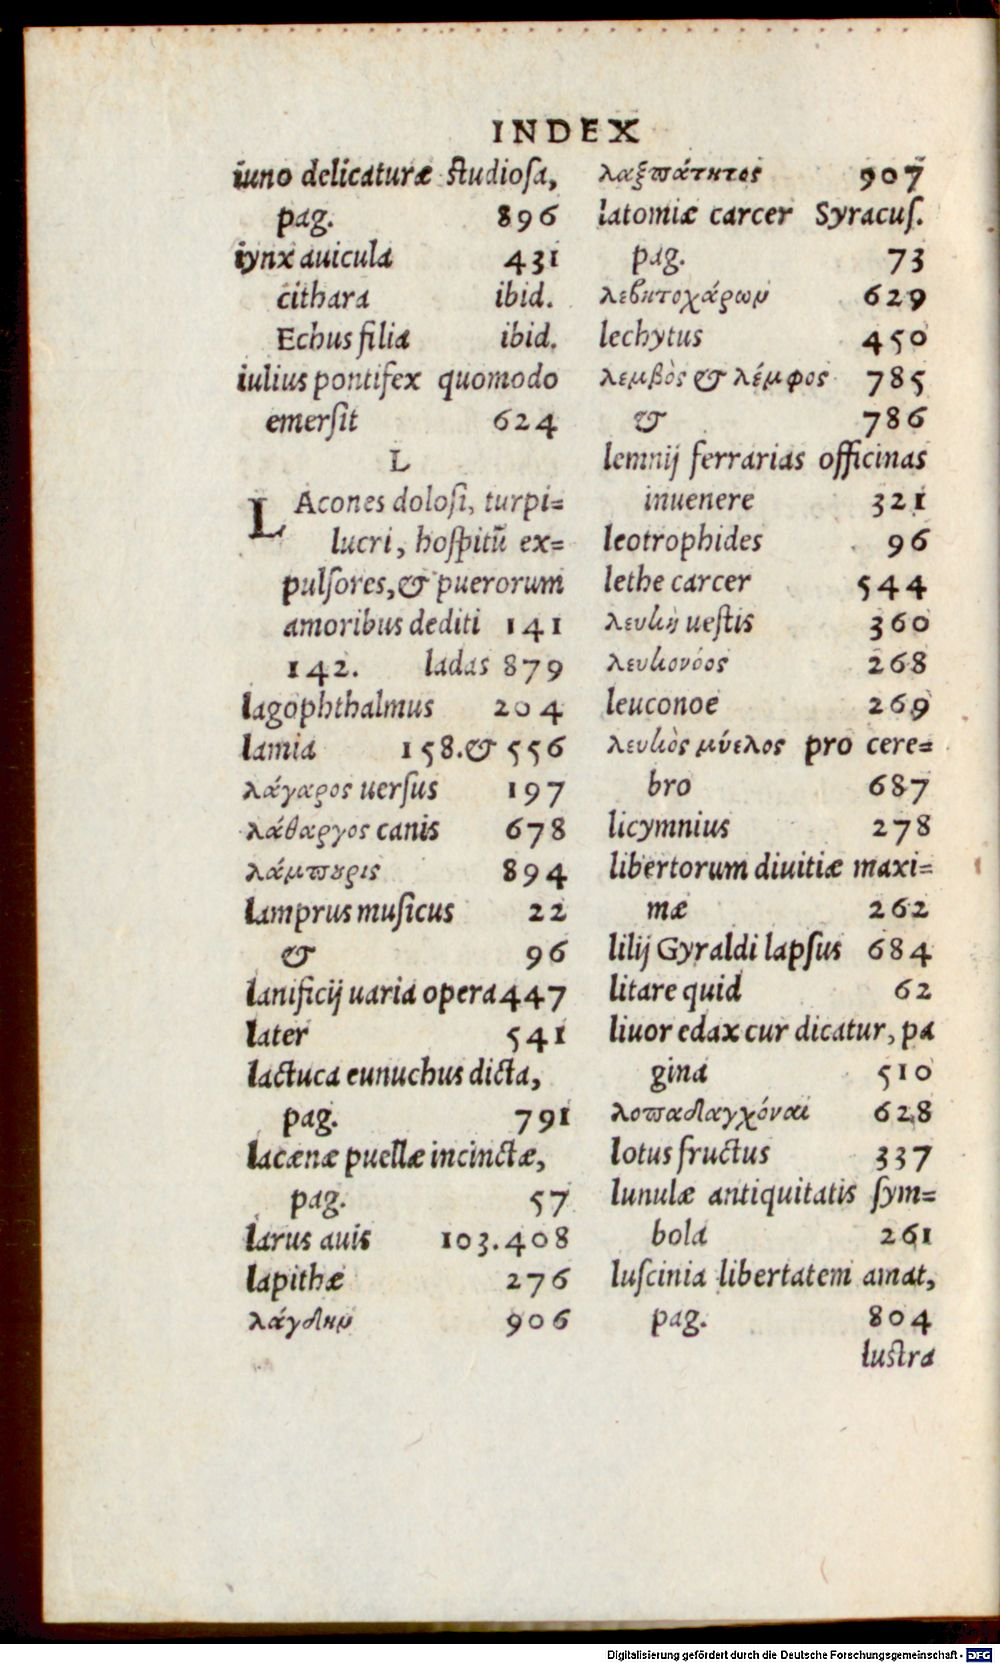 INDEX
iuno delicaturæ studiosa,
pag. 896
iynx auicula 431
cithara ibid.
Echus filia ibid.
iulius pontifex quomodo
emersit 624
L
LAcones dolosi, turpi=
lucri, hospitū ex=
pulsores, & puerorum
amoribus dediti 141
142. ladas 879
lagophthalmus 204
lamia 158. & 556
λάγαρος uersus 197
λάθαργος canis 678
λάμπουρις 894
lamprus musicus 22
& 96
lanificij uaria opera 447
later 541
lactuca eunuchus dicta,
pag. 791
lacænæ puellæ incinctæ,
pag. 57
larus auis 103.408
lapithæ 276
λάγδην 906
λαξπάτητος 907
latomiæ carcer Syracus.
pag. 73
λεβητοχάρων 629
lechytus 450
λεμβὸς & λέμφος 785
& 786
lemnij ferrarias officinas
inuenere 321
leotrophides 96
lethe carcer 544
λευκὴ uestis 360
λευκονόος 268
leuconoe 269
λευκὸς μύελος pro cere=
bro 687
licymnius 278
libertorum diuitiæ maxi=
mæ 262
lilij Gyraldi lapsus 684
litare quid 62
liuor edax cur dicatur, pa
gina 510
λοπαδαγχόναι 628
lotus fructus 337
lunulæ antiquitatis sym=
bola 261
luscinia libertatem amat,
pag. 804
lustra
Digitalisierung gefördert durch die Deutsche Forschungsgemeinschaft - DFG